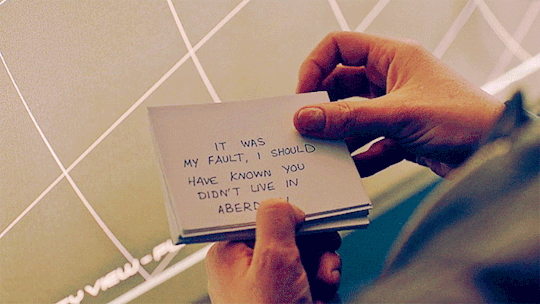 IT WAS
MY FAULT, I SHOULD
HAVE KNOWN YOU
DIDN'T LIVE IN
VIEW